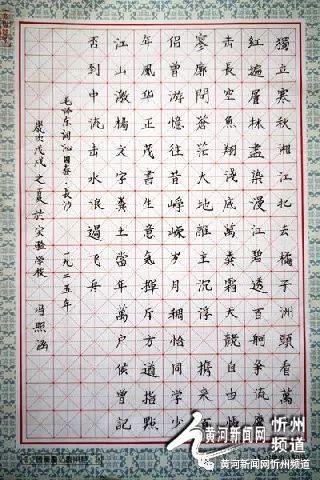 獨立寒秋湘江北去橘子洲頭看萬
紅遍層林盡染漫江碧透百舸爭流鷹
击長空魚翔淺底萬類霜天競自由悵
寥廓問蒼茫大地誰主沉浮 攜來百
侣曾游憶往昔崢嶸岁月稠恰同学少
年風华正茂書生意氣揮斥方遒指點
江山激揚文字糞土當年萬户侯曾記
否到中流击水浪遏飞舟
毛泽东词沁园春·長沙 一九二五年
歲次戊戌之夏於实验学校 冯熙涵
黄河新闻网 忻州频道
黄河新闻网忻州频道